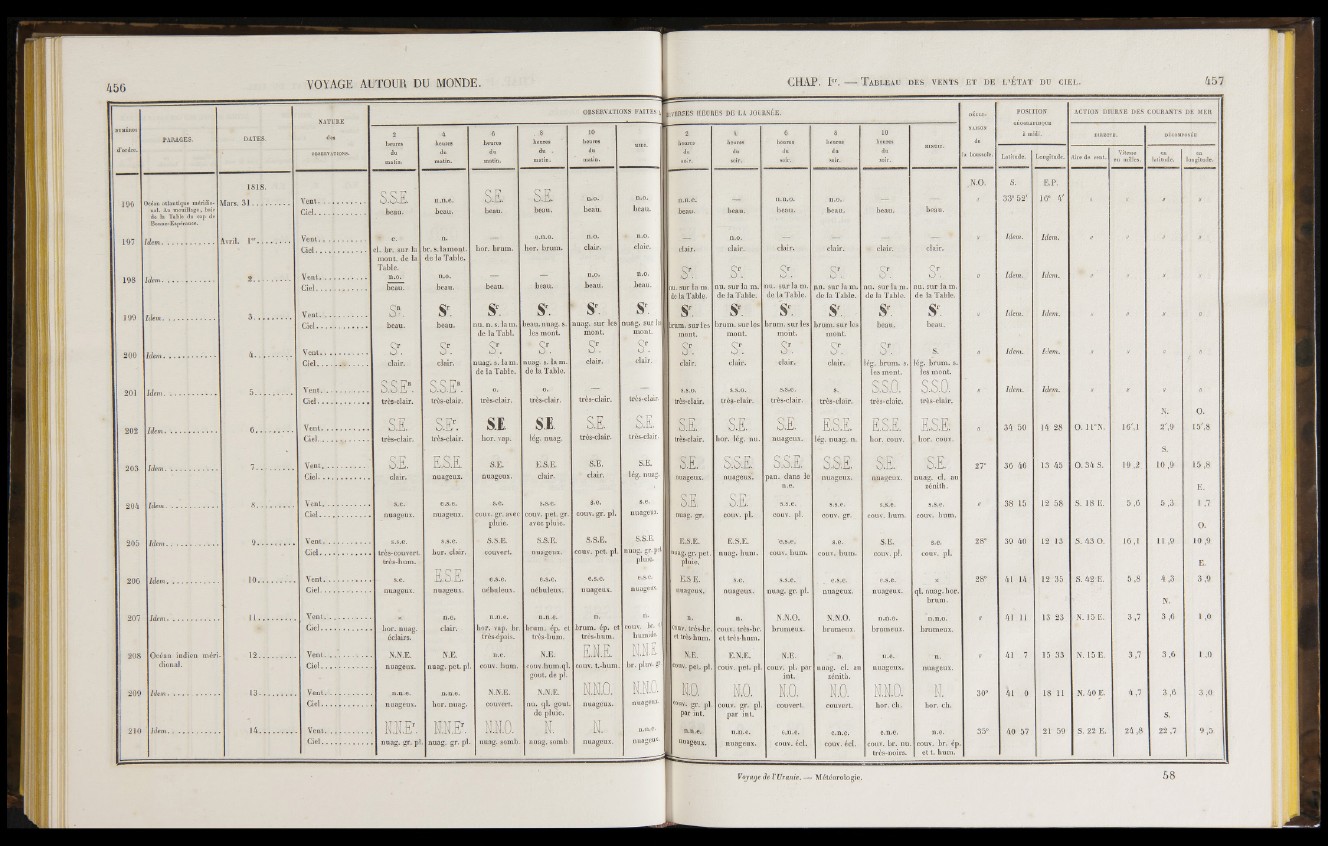 456 VOYAGE AUTOUR DU MONDE.
CHAP. Ier. — TABLEAU DES VENTS ET DE L'ÉTAT DU CIEL. 457
NUMÉROS d'ordre. PARAGES. DATES. NATURE des OBSERVATIONS.
OBSERVATIONS FAITES
2 heures du matin. 4 heures du matin. 6 heures du matin. 8 heures du matin. 10 heures du matin. MIDI.
HEURES DE LA JOURNÉE.
2 heures du soir. 4 heures du soir. 6 heures du soir. 8 heures du soir. 10 heures du soir. MINUIT.
DÉCLINAISON de la boussole. POSITION GÉOGRAPHIQUE à midi. Latitude. Longitude.
ACTION DIURNE DES COURANTS DE MER
DIRECTE. DÉCOMPOSÉE
Aire de vent. Vitesse en milles. en latitude. en longitude.
1818. N.O. S. E.P.
196 Océan atlantique méridional. Au mouillage, baie de la Table du cap de Bonne-Espérance. Mars. 31 Vent S.S.E. n.n.e. S.E. S.E. n.o. n.o. n.n.e. — n.n.o. n.o. — — 33° 52' 16° 4'
Ciel beau. beau. beau. beau. beau. beau. beau. beau. beau. beau. beau. beau.
197 Idem. Avril. 1er Vent e. n. — o.n.o. n.o. n.o. — n.o. — — — — Idem. Idem.
Ciel cl. br. sur la mont. de la Table. br. s. la mont. de la Table. hor. brum. hor. brum. clair. clair. clair. clair. clair. clair. clair. clair.
198 Idem. 2 Vent n.o. n.o. — — n.o. n.o. Sr. Sr. Sr. Sr. Sr. Sr. Idem. Idem.
Ciel beau. beau. beau. beau. beau. beau. nu. sur la m. de la Table. nu. sur la m. de la Table. nu. sur la m. de la Table. nu. sur la m. de la Table. nu. sur la m. de la Table. nu. sur la m. de la Table.
199 Idem. 3 Vent Sn. Sr. Sr. Sr. Sr. Sr. Sr. Sr. Sr. Sr. Sr. Sr. Idem. Idem.
Ciel beau. beau. nu. n. s. la m. de la Tabl. beau. nuag. s. les mont. nuag. sur les mont. nuag. sur les mont. brum. sur les mont. brum. sur les mont. brum. sur les mont. brum. sur les mont. beau. beau.
200 Idem. 4 Vent Sr. Sr. Sr. Sr. Sr. Sr. Sr. Sr. Sr. Sr. Sr. S. Idem. Idem.
Ciel clair. clair. nuag. s. la m. de la Table. nuag. s. la m. de la Table. clair. clair. clair. clair. clair. clair. lég. brum. s. les mont. lég. brum. s. les mont.
201 Idem. 5 Vent S.S.En. S.S.En. o. o. — — s.s.o. s.s.o. s.s.e. s. S.S.O. S.S.O. Idem. Idem.
Ciel très-clair. très-clair. très-clair. très-clair. très-clair. très-clair. très-clair. très-clair. très-clair. très-clair. très-clair. très-clair.
N. O.
202 Idem. 6 Vent S.E. S.Er. S.E. S.E. S.E. S.E. S.E. S.E. S.E. E.S.E. E.S.E. E.S.E. 34 50 14 28 O. 11°N. 16',1 2',9 15',8
Ciel très-clair. très-clair. hor. vap. lég. nuag. très-clair. très-clair. très-clair. hor. lég. nu. nuageux. lég. nuag. n. hor. couv. hor. couv.
S.
203 Idem. 7 Vent S.E. E.S.E. S.E. E.S.E. S.E. S.E. S.E. S.S.E. S.S.E. S.S.E. S.E. S.E. 27° 36 46 13 45 O. 34 S. 19,2 10,9 15,8
Ciel clair. nuageux. nuageux. clair. clair. lég. nuag. nuageux. nuageux. pan. dans le n.e. nuageux. nuageux. nuag. cl. au zénith.
E.
204 Idem. 8 Vent s.e. e.s.e. s.e. s.s.e. s.e. s.e. S.E. S.E. s.s.e. s.s.e. s.s.e. s.s.e. 38 15 12 58 S. 18 E. 5,6 5,3 1,7
Ciel nuageux. nuageux. couv. gr. avec pluie. couv. pet. gr. avec pluie. couv. gr. pl. nuageux. nuag. gr. couv. pl. couv. pl. couv. gr. couv. hum. couv. hum.
O.
205 Idem. 9 Vent s.s.e. s.s.e. S.S.E. S.S.E. S.S.E. S.S.E. E.S.E. E.S.E. e.s.e. s.e. S.E. s.e. 28° 39 40 12 13 S. 43 O. 16,1 11,9 10,9
Ciel très-couvert. très-hum. hor. clair. couvert. nuageux. couv. pet. pl. nuag. gr. pet. pluie. nuag. gr. pet. pluie. nuag. hum. couv. hum. couv. hum. couv. pl. couv. pl.
E.
206 Idem. 10 Vent s.e. E.S.E. e.s.e. e.s.e. e.s.e. e.s.e. E.S.E. s.e. s.s.e. e.s.e. e.s.e. 28° 41 14 12 35 S. 42 E. 5,8 4,3 3,9
Ciel nuageux. nuageux. nébuleux. nébuleux. nuageux. nuageux. nuageux. nuageux. nuag. gr. pl. nuageux. nuageux. ql. nuag. hor. brum.
N.
207 Idem. 11 Vent n.e. n.n.e. n.n.e. n. n. n. n. N.N.O. N.N.O. n.n.o. n.n.o. 41 11 13 23 N. 15 E. 3,7 3,6 1,0
Ciel hor. nuag. éclairs. clair. hor. vap. br. très-épais. brum. ép. et très-hum. brum. ép. et très-hum. couv. br. et humide. couv. très-br. et très-hum. couv. très-br. et très-hum. brumeux. brumeux. brumeux. brumeux.
208 Océan indien méridional. 12 Vent N.N.E. N.E. n.e. N.E. E.N.E. N.N.E. N.E. E.N.E. N.E. n. n. n. 41 7 15 33 N. 15 E. 3,7 3,6 1,0
Ciel nuageux. nuag. pet. pl. couv. hum. couv. hum. ql. gout. de pl. couv. t.-hum. br. pluv. gr. couv. pet. pl. couv. pet. pl. couv. pl. par int. nuag. cl. au zénith. nuageux. nuageux.
209 Idem. 13 Vent n.n.e. n.n.e. N.N.E. N.N.E. N.N.O. N.N.O. N.O. N.O. N.O. N.O. N.N.O. N. 30° 41 0 18 11 N. 40 E. 4,7 3,6 3,0
Ciel nuageux. hor. nuag. couvert. nu. ql. gout. de pluie. nuageux. nuageux. couv. gr. pl. par int. couv. gr. pl. par int. couvert. couvert. hor. ch. hor. ch.
S.
210 Idem. 14 Vent N.N.Er. N.N.Er. N.N.O. N. N. n.n.e. n.n.e. n.n.e. e.n.e. e.n.e. e.n.e. n.e. 35° 40 57 21 59 S. 22 E. 24,8 22,7 9,5
Ciel nuag. gr. pl. nuag. gr. pl. nuag. somb. nuag. somb. nuageux. nuageux. nuageux. nuageux. couv. écl. couv. écl. couv. br. nu. très-noirs. couv. br. ép. et t. hum.
Voyage de l'Uranie. — Météorologie. 58